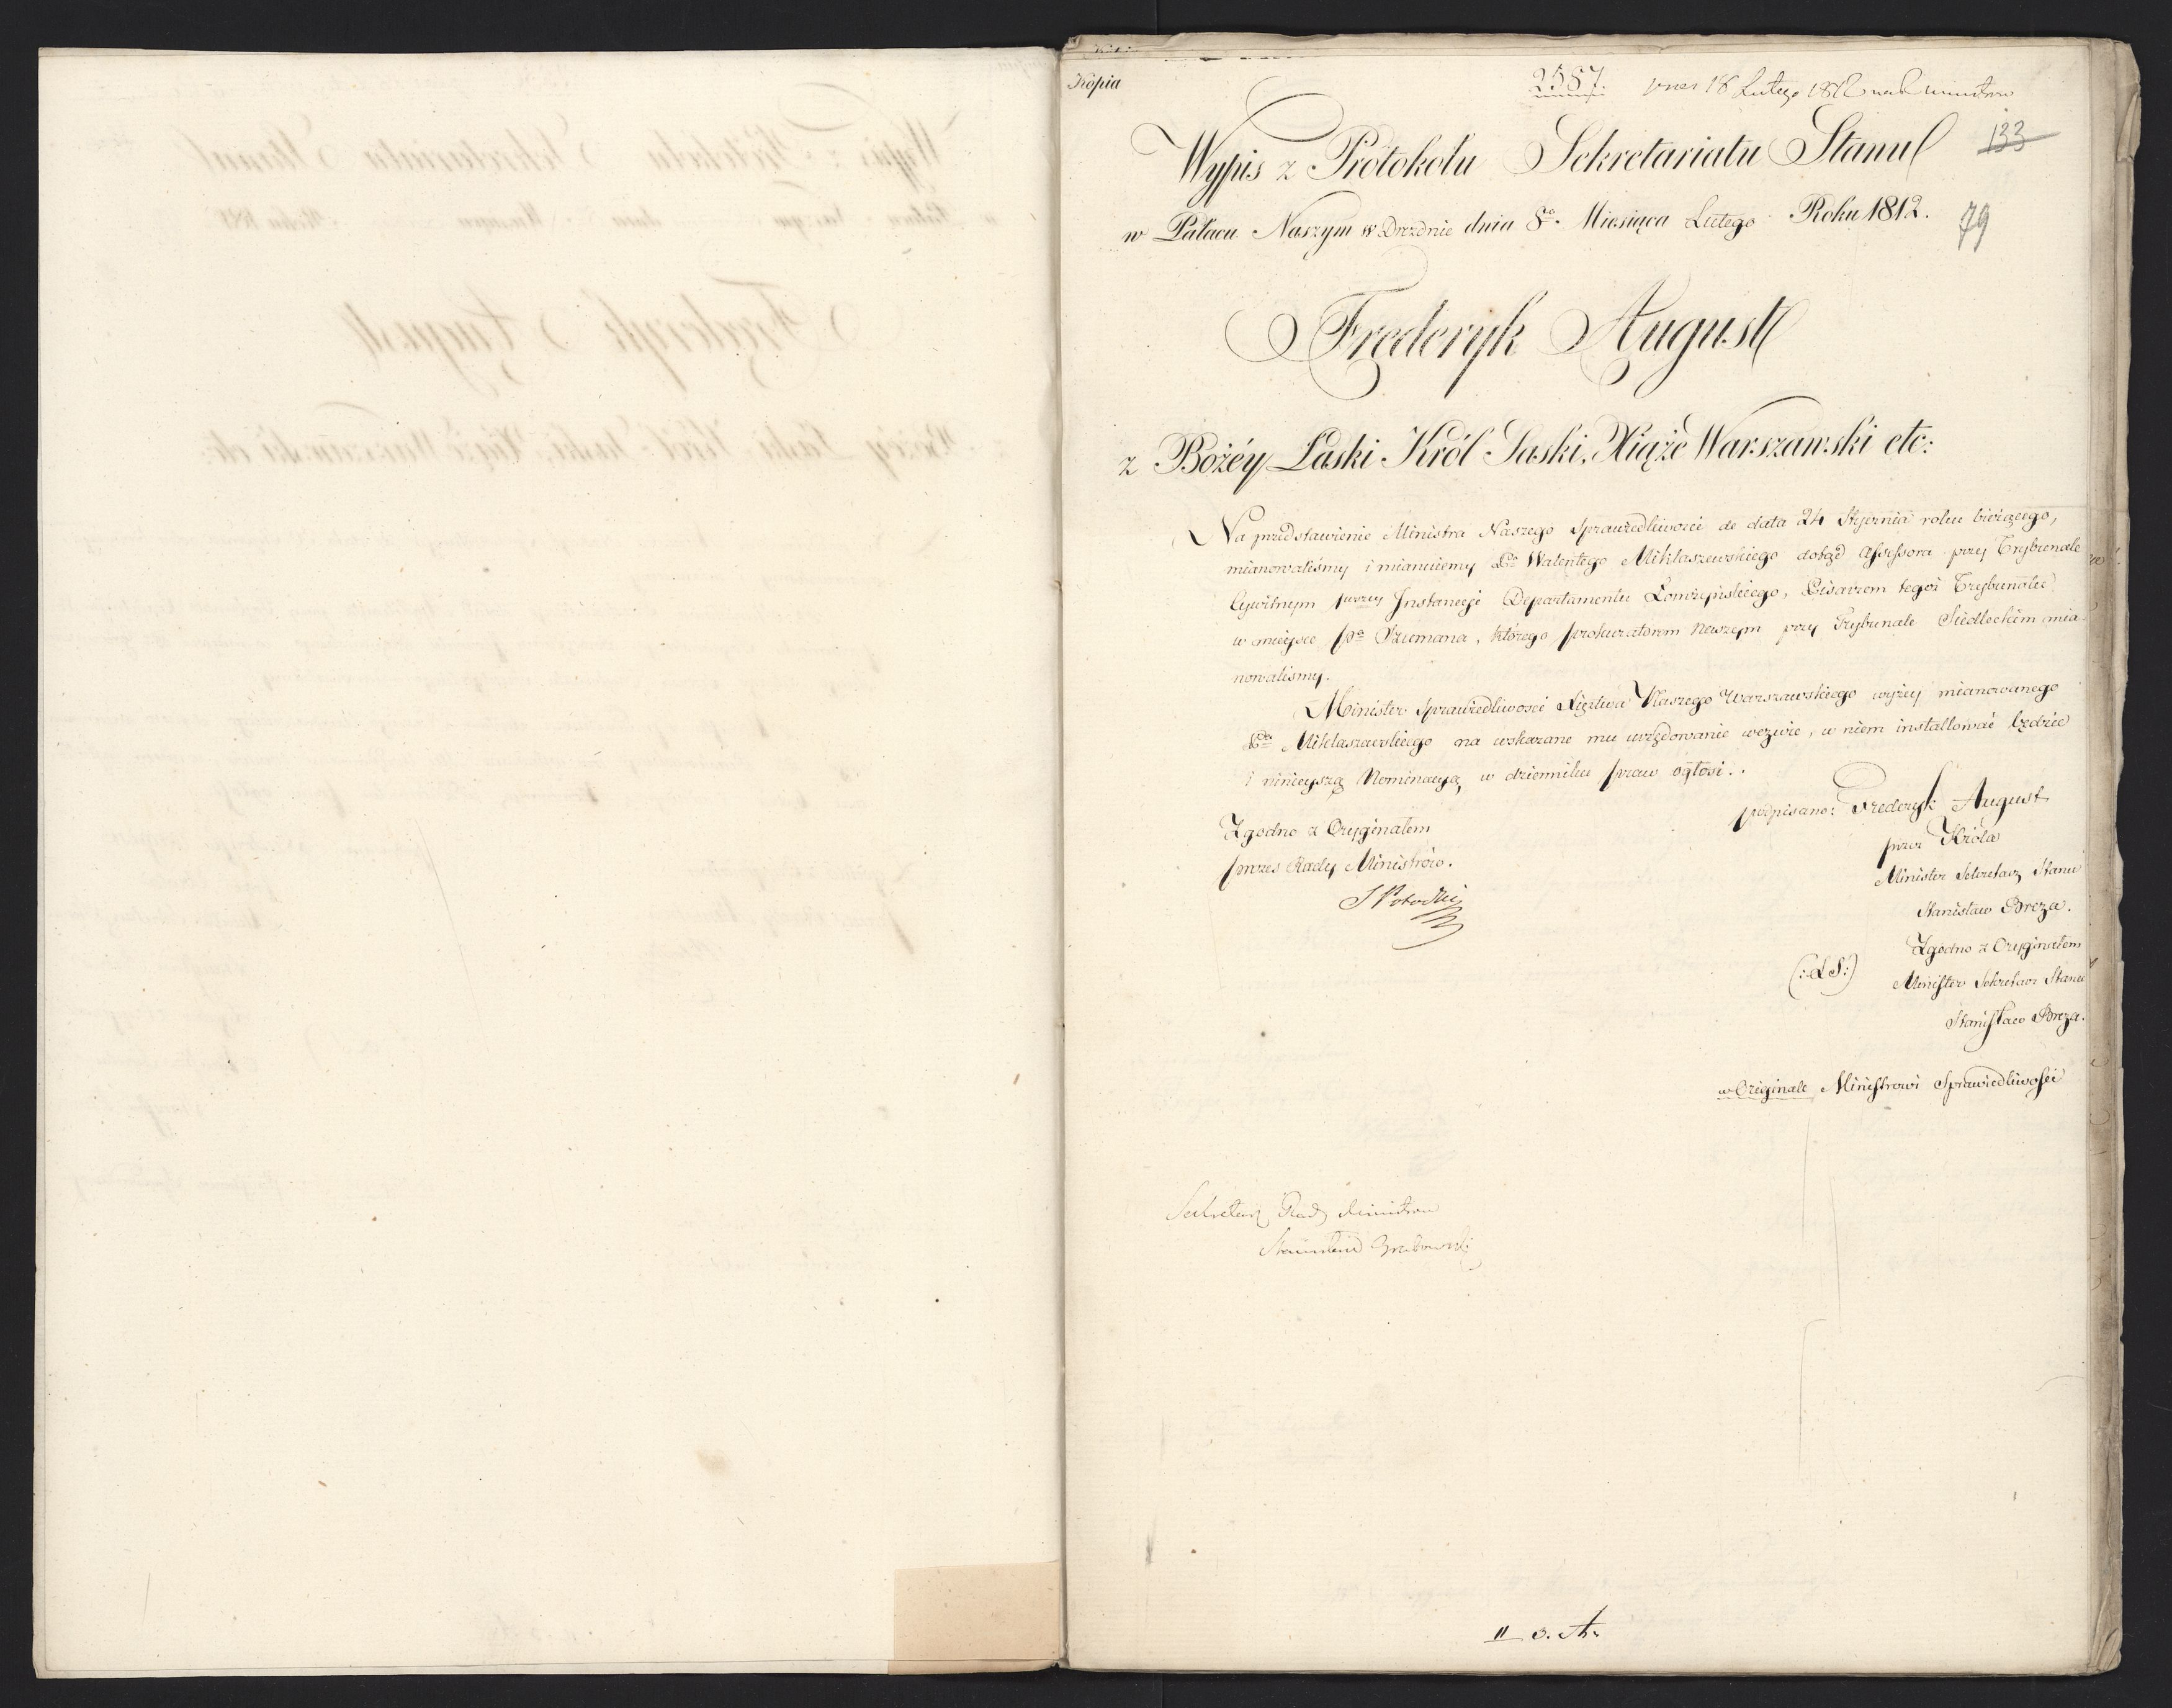 Kopia
2587. 18 Lutego 1812
133
Wypis z Protokołu Sekretariatu Stanu
w Pałacu Naszym w Dreznie dnia 8º. Miesiąca Lutego Roku 1812.
79
Frederyk August
z Bożéy Łaski Król Saski, Xiąże Warszawski etc:
Na przedstawienie Ministra Naszego Sprawiedliwości de dato 24 Stycznia roku bieżącego,
mianowaliśmy i mianuiemy Walentego Miklaszewskiego dotąd Assessora przy Trybunale
Cywilnym Instancyi Departamentu Łomżyńskiego, Pisarzem tegoż Trybunału
w mieysce którego prokuratorem Naszym przy Trybunale Siedleckim mia-
nowaliśmy.
Minister Sprawiedliwości Xięstwa Naszego Warszawskiego wyżey mianowanego
Miklaszewskiego na wskazane mu urzędowanie wezwie, w niem installować będzie
i ninieyszą Nominacyą w dzienniku praw ogłosi.
podpisano: Frederyk August
przez Króla
Minister Sekretarz Stanu
Stanisław Breza.
Zgodno z Oryginałem
prezes Rady Ministrów.
S Potocki
Zgodno z Oryginałem
(:LS:) Minister Sekretarz Stanu
Stanisław Breza.
w Oryginale Ministrowi Sprawiedliwości
Sekretarz Rady Ministrow
Grabowski
II 3. A.